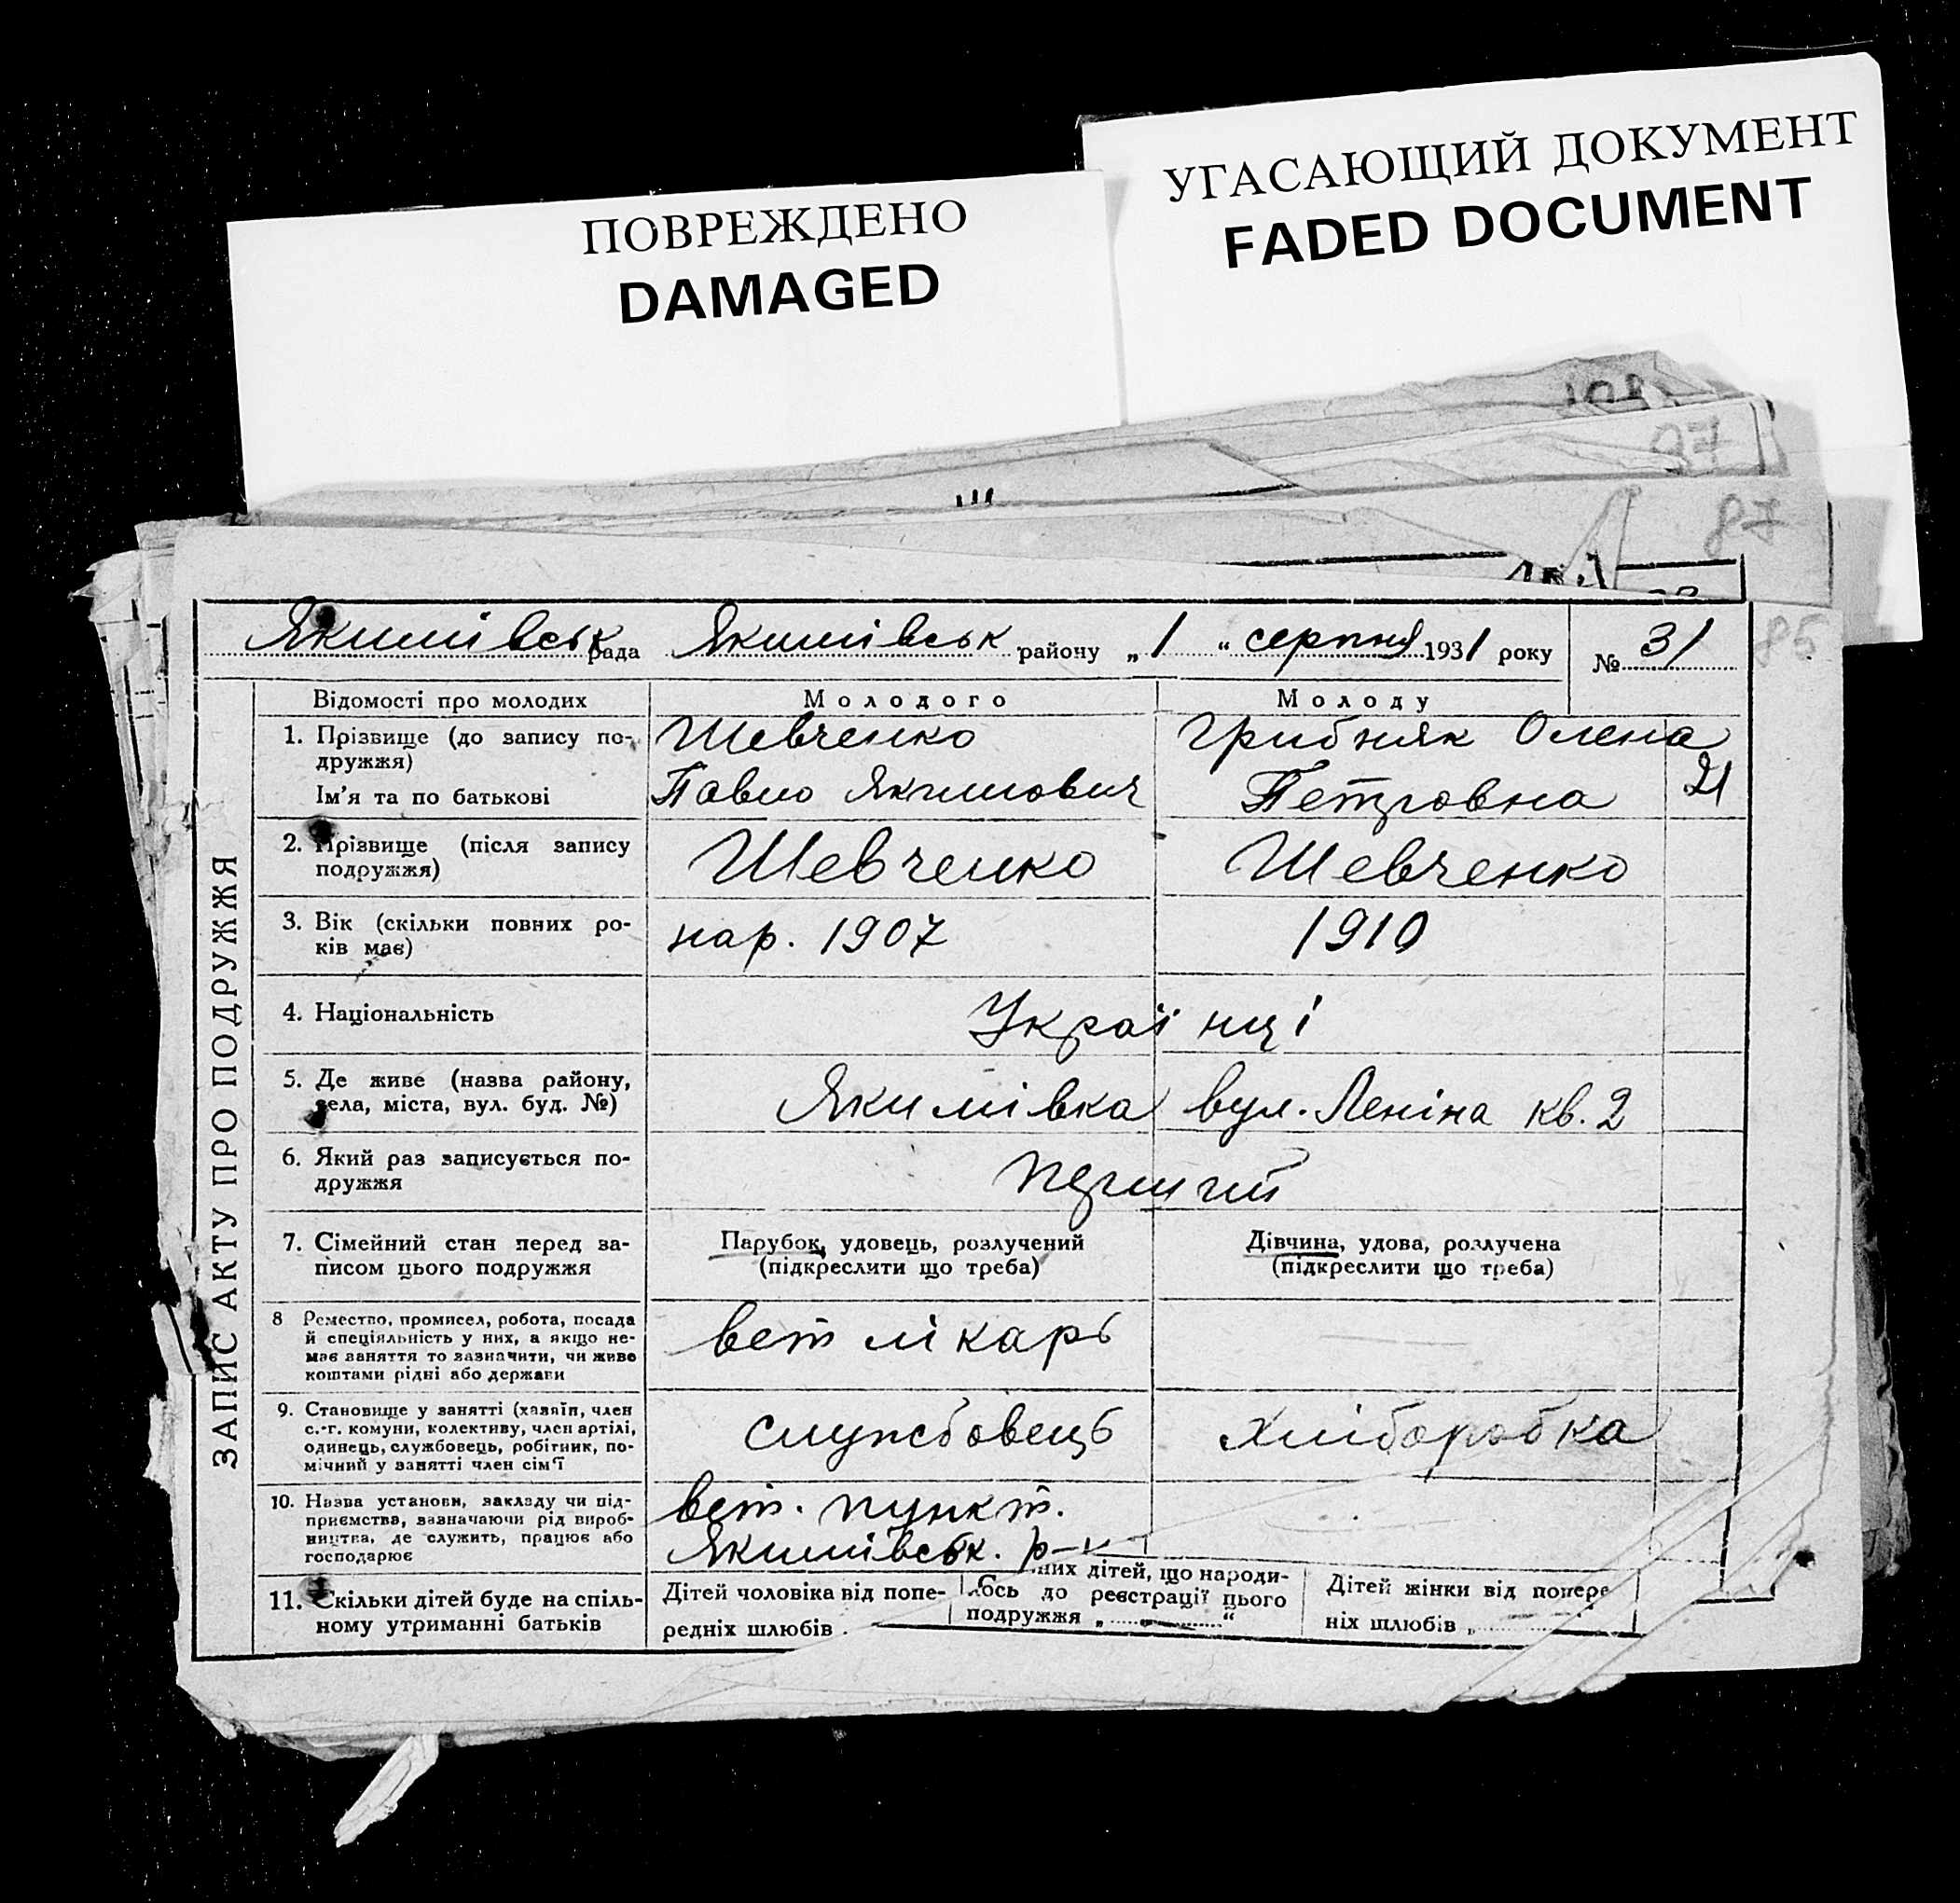 УГАСАЮЩИЙ ДОКУМЕНТ
FADED DOCUMENT
ПОВРЕЖДЕНО
DAMAGED
97
87
85
Якимівськ рада Якимівськ району „ 1 “ серпня 1931 року № 31
Відомості про молодих Молодого Молоду
1. Прізвище (до запису по-
дружжя)
Ім'я та по батькові
Шевченко
Павло Якимович
Грибняк Олена
Петровна
21
2. Прізвище (після запису
подружжя)
Шевченко
Шевченко
3. Вік (скільки повних ро-
ків має)
нар. 1907
1910
4. Національність
Українці
5. Де живе (назва району,
села, міста, вул. буд. №)
Якимівка вул. Леніна кв. 2
6. Який раз записується по-
дружжя
перший
7. Сімейний стан перед за-
писом цього подружжя
Парубок, удовець, розлучений
(підкреслити що треба)
Дівчина, удова, розлучена
(підкреслити що треба)
8 Ремество, промисел, робота, посада
й спеціяльність у них, а якщо не-
має заняття то зазначити, чи живе
коштами рідні або держави
вет лікарь
9. Становище у занятті (хазяїн, член
с.-г. комуни, колективу, член артілі,
одинець, службовець, робітник, по-
мічний у занятті член сім'ї
службовець
хліборобка
10. Назва установи, закладу чи під-
приємства, зазначаючи рід вироб-
ництва, де служить, працює або
господарює
вет. пункт.
Якимівськ. р-
11. Скільки дітей буде на спіль-
ному утриманні батьків
Дітей чоловіка від попе-
редніх шлюбів
них дітей, що народи-
лось до реєстрації цього
подружжя „ “
Дітей жінки від попере
ніх шлюбів „
ЗАПИС АКТУ ПРО ПОДРУЖЖЯ